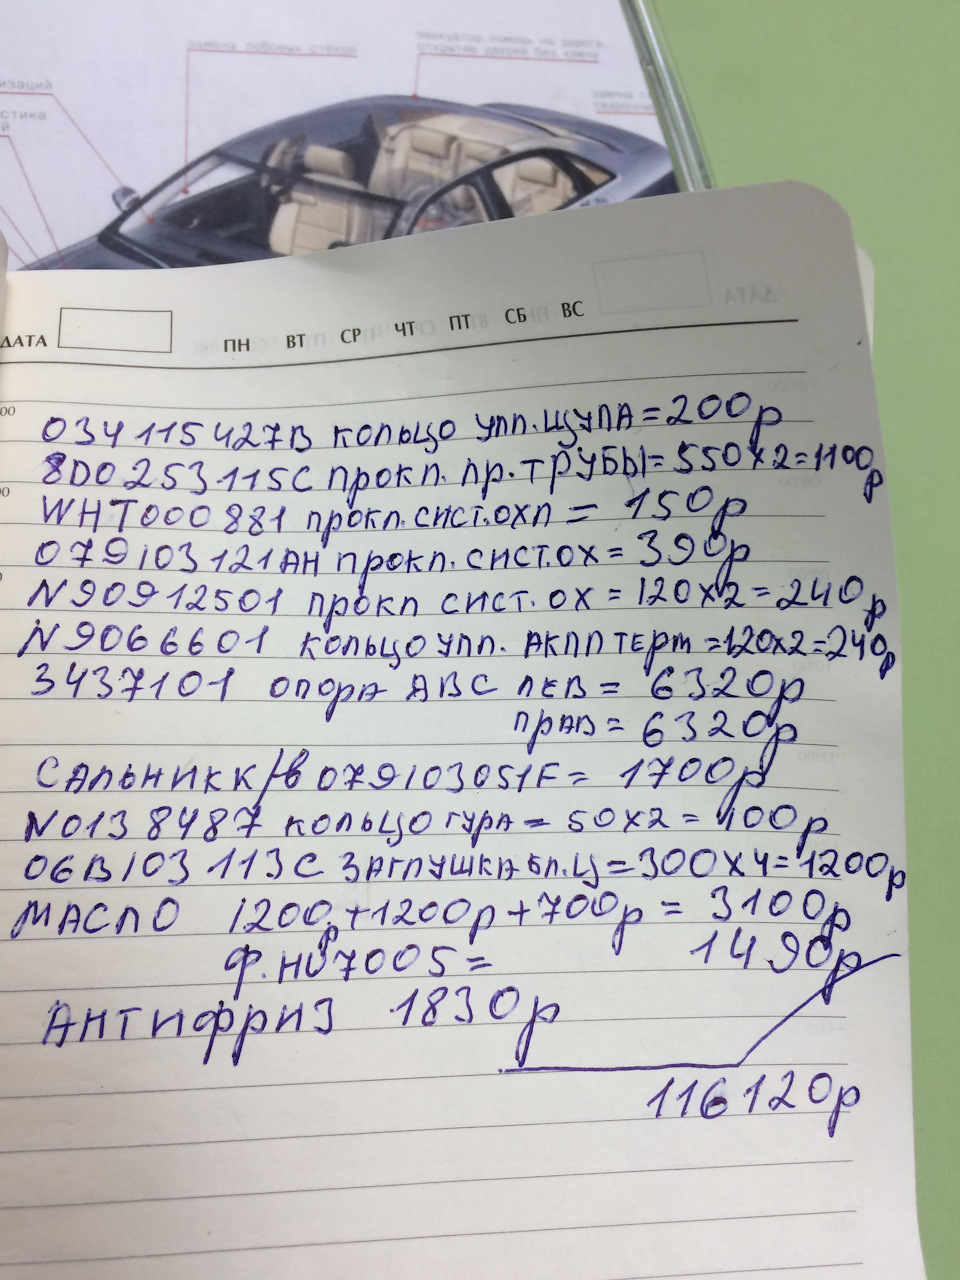 замена лобовых стёкол
эвакуатор, помощь на дороге,
открытие дверей без ключа
изаций
стика
й
замена
сварочн
ДАТА ПН ВТ СР ЧТ ПТ СБ ВС
034115427В КОЛЬЦО УПЛ.ЩУПА = 200р
8D0253115C ПРОКЛ. ПР. ТРУБЫ = 550х2=1100р
WHT000881 ПРОКЛ. СИСТ.ОХЛ = 150р
079103121АН ПРОКЛ. СИСТ.ОХ = 390р
N90912501 ПРОКЛ СИСТ. ОХ = 120х2=240р
N9066601 КОЛЬЦО УПЛ. АКПП ТЕРМ =120х2=240р
3437101 ОПОРА ДВС ЛЕВ = 6320р
ПРАВ = 6320р
САЛЬНИК К/В 079103051F = 1700р
N0138487 КОЛЬЦО ГУРА = 50х2 = 100р
06В103113С ЗАГЛУШКА БЛ.Ц = 300х4=1200р
МАСЛО 1200р+1200р+700р = 3100р
Ф. HU7005 = 1490р
АНТИФРИЗ 1830р
116120р